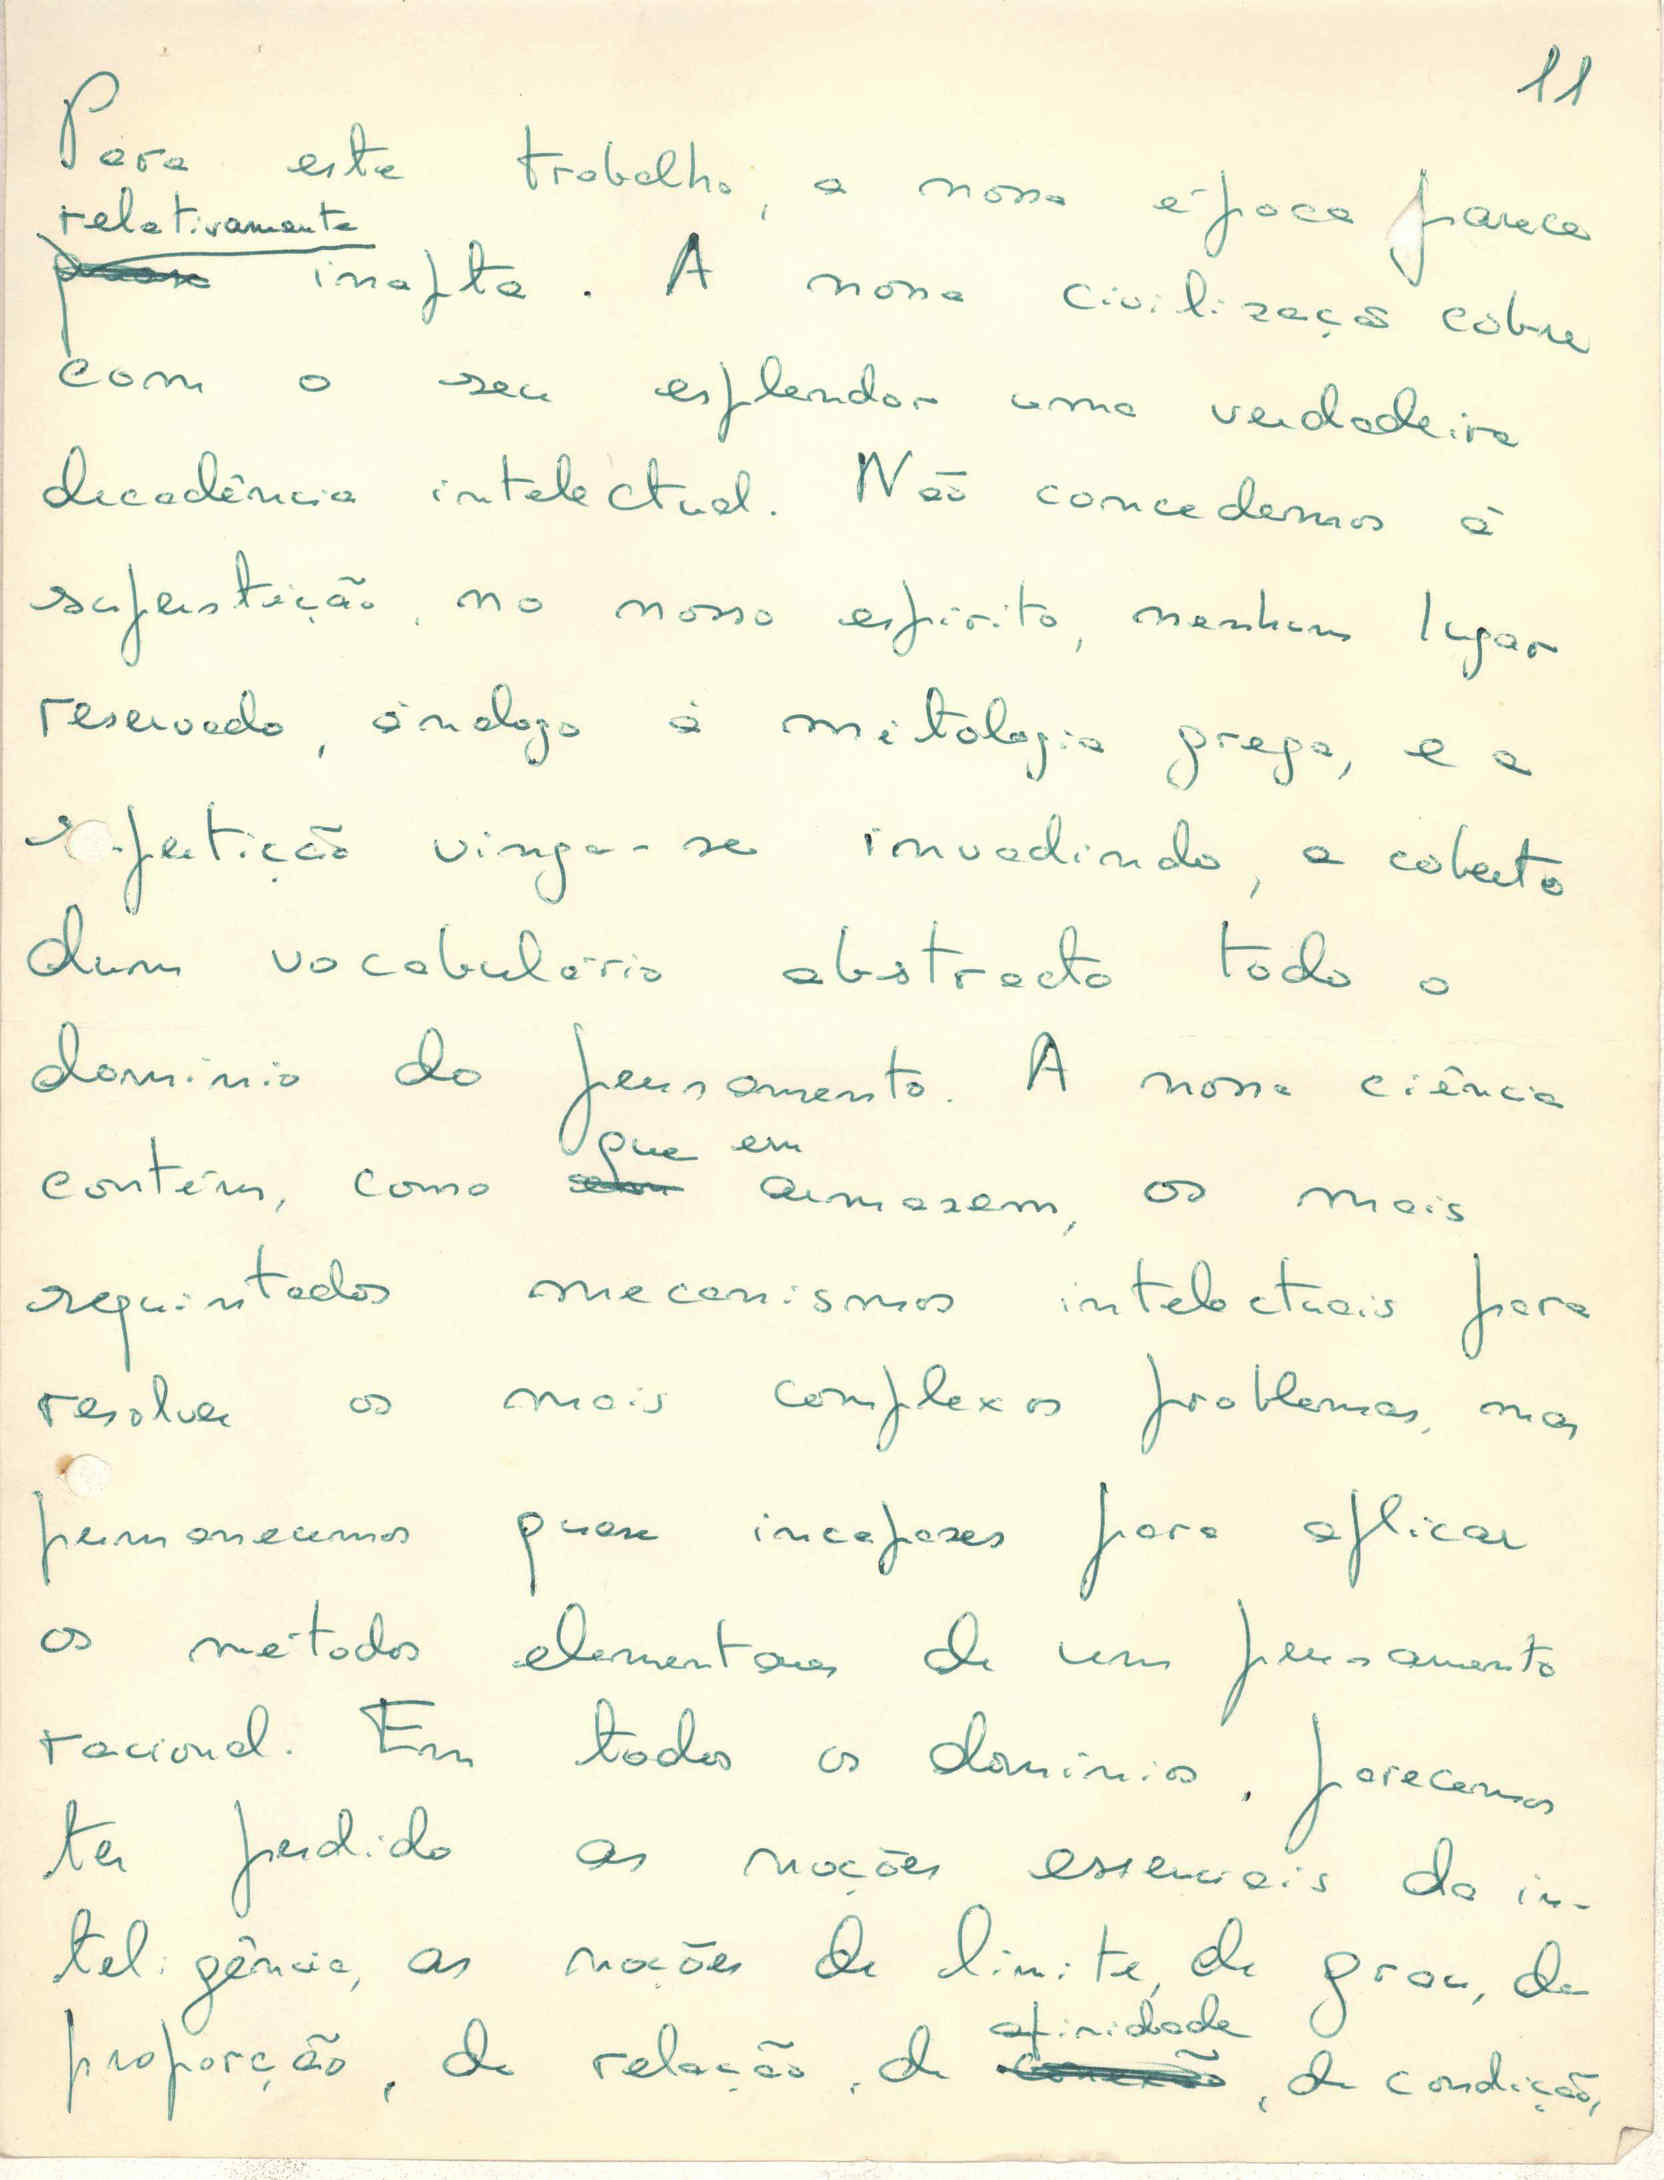 11
Para este trabalho, a nossa época parece
relativamente
quase inapta. A nossa civilização cobre
com o seu esplendor uma verdadeira
decadência intelectual. Não concedemos à
superstição, no nosso espírito, nenhum lugar
reservado, análogo à mitologia grega, e a
superstição vinga-se invadindo, a coberto
dum vocabulário abstracto todo o
domínio do pensamento. A nossa ciência
que em
contém, como armazem, os mais
requintados mecanismos intelectuais para
resolver os mais complexos problemas, mas
permanecemos quase incapazes para aplicar
os métodos elementares de um pensamento
racional. Em todos os domínios, parecemos
ter perdido as noções essenciais da in-
teligência, as noções de limite, de grau, de
afinidade
proporção, de relação, de conexão, de condição,